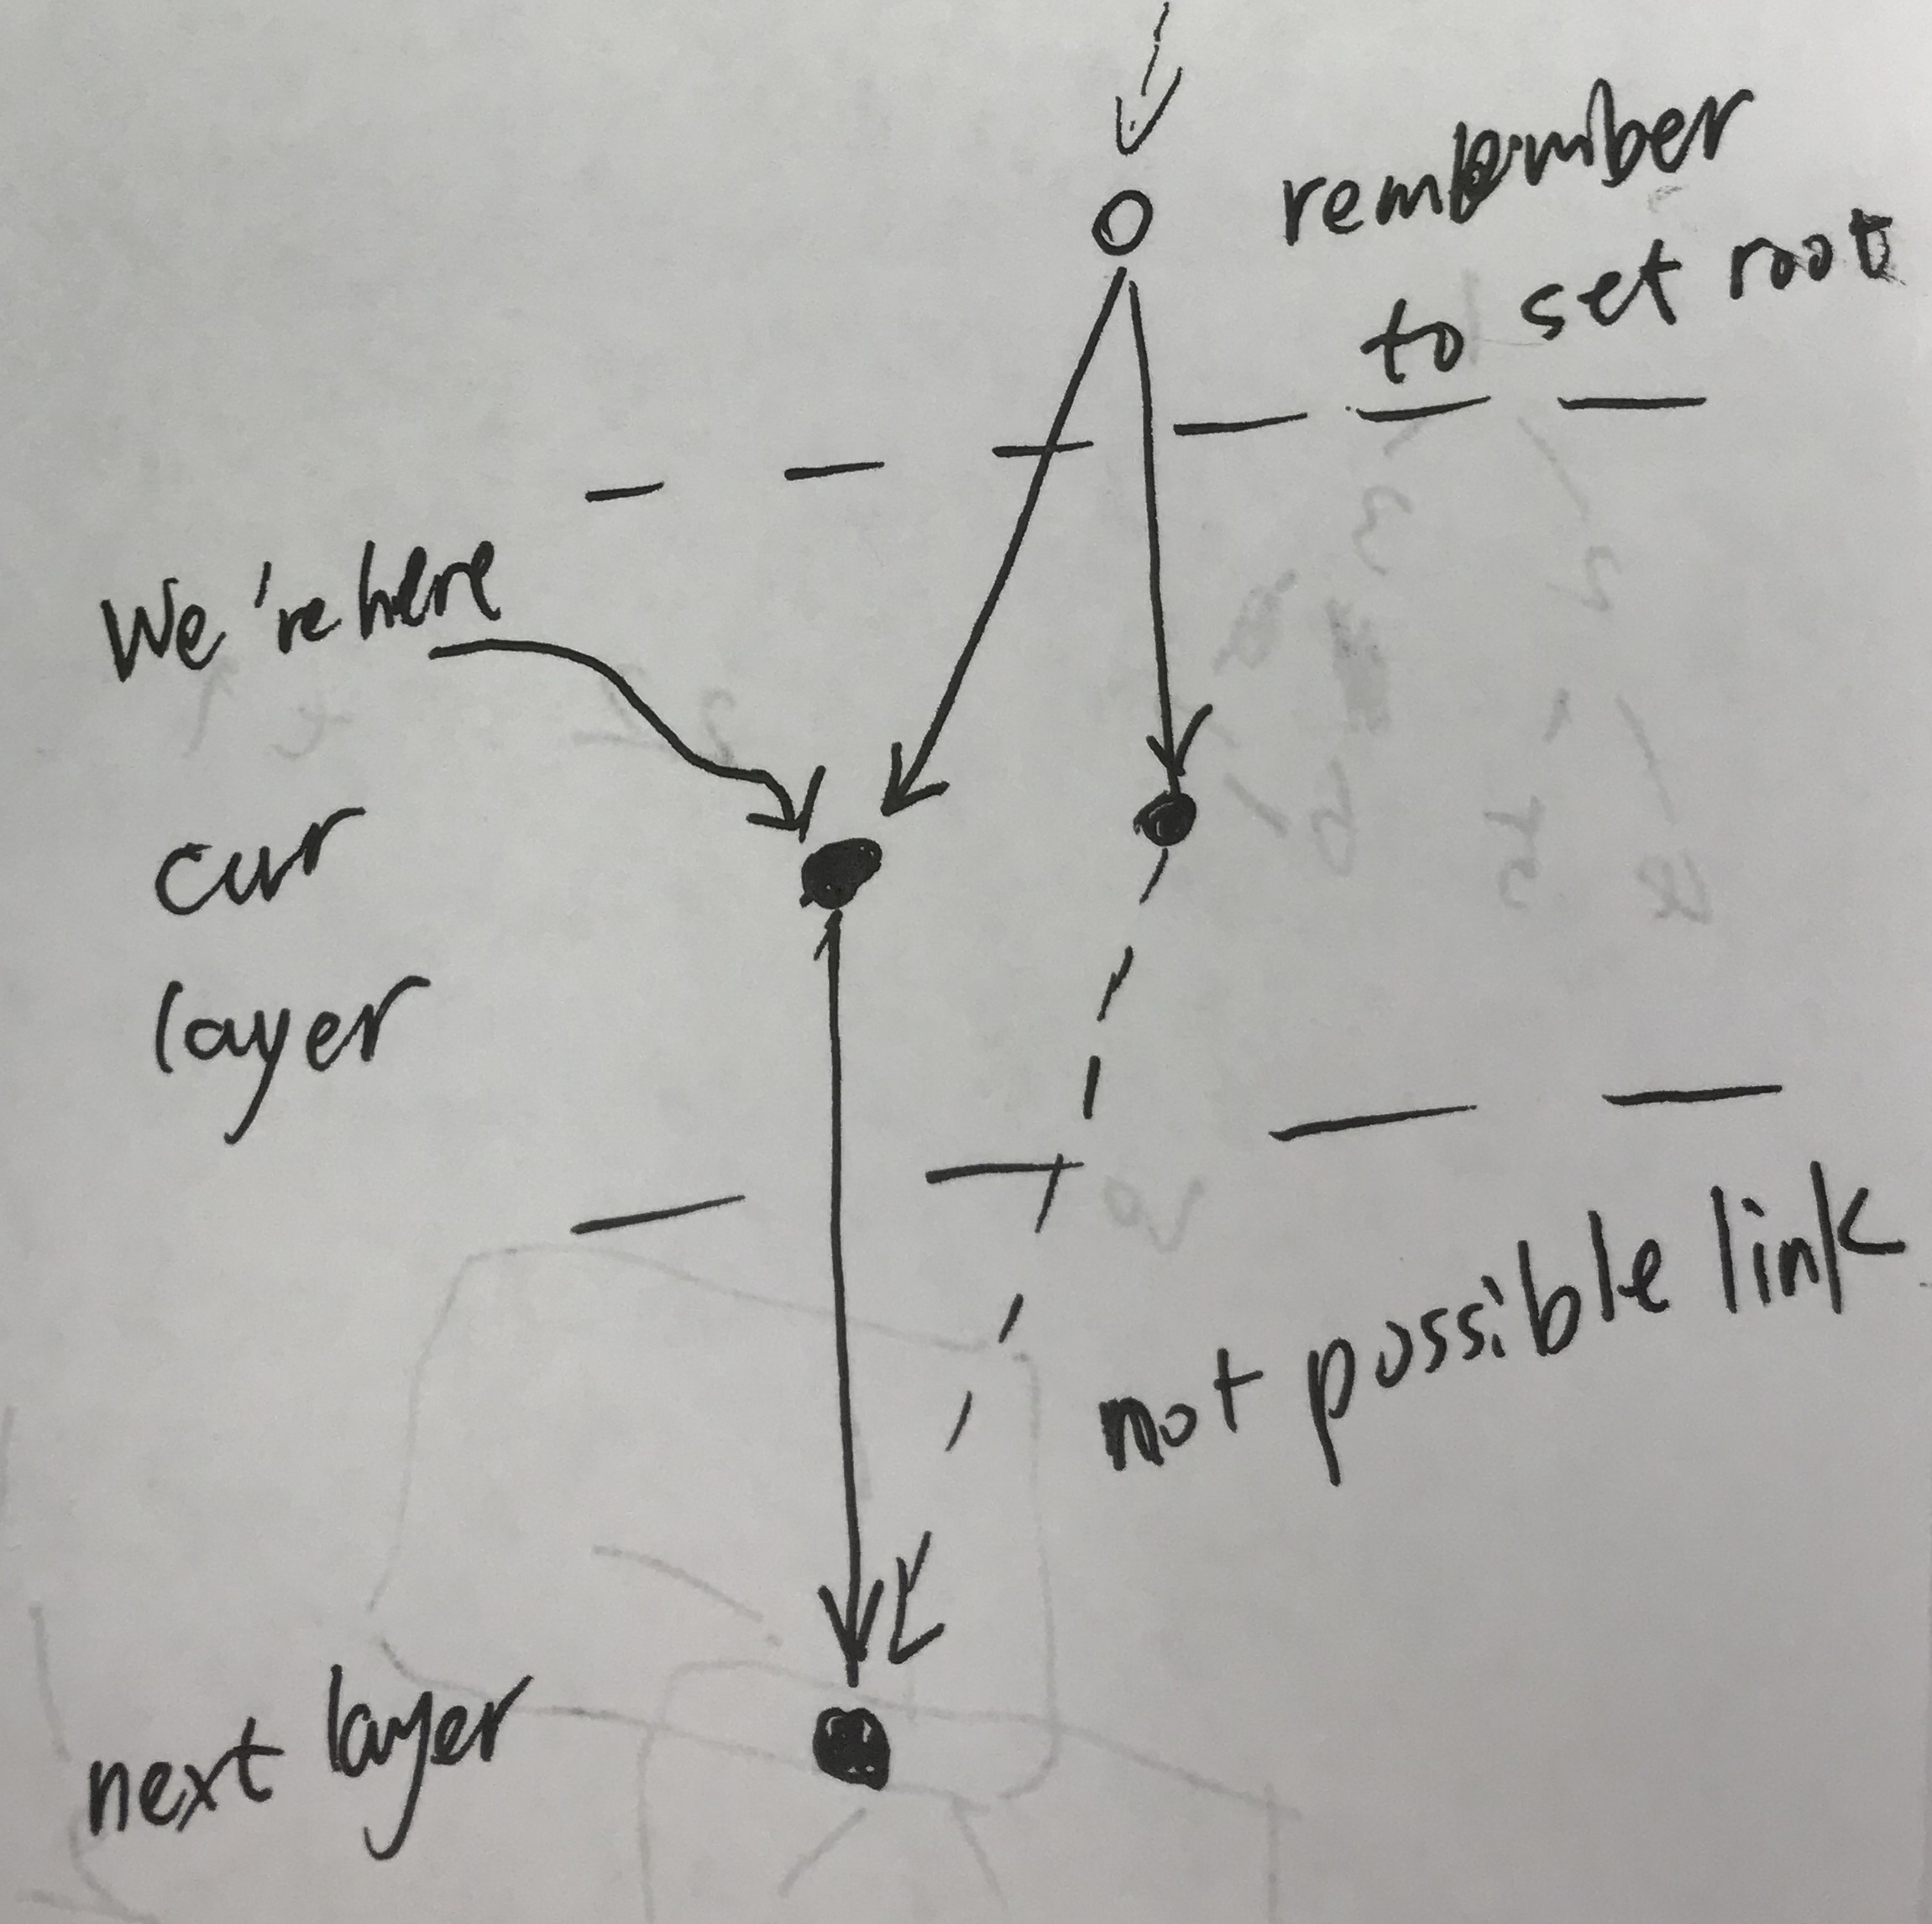 remember
to set root
We're here
cur
layer
not possible link
next layer